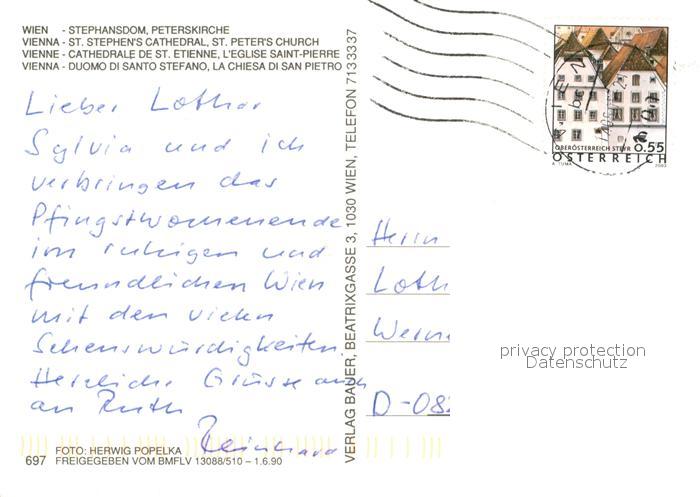 WIEN - STEPHANSDOM, PETERSKIRCHE
VIENNA - ST. STEPHEN'S CATHEDRAL, ST. PETER'S CHURCH
VIENNE - CATHEDRALE DE ST. ÈTIENNE, L'EGLISE SAINT-PIERRE
VIENNA - DUOMO DI SANTO STEFANO, LA CHIESA DI SAN PIETRO
Lieber Lothar
Sylvia und ich
verbringen das
Pfingstwochenende
im ruhigen und
freundlichen Wien
mit den vielen
Sehenswürdigkeiten.
Herzliche Grüsse auch
an Ruth
Reinhard
FOTO: HERWIG POPELKA
697 FREIGEGEBEN VOM BMFLV 13088/510 – 1.6.90
VERLAG BAUER, BEATRIXGASSE 3, 1030 WIEN, TELEFON 7133337
WIEN
OBERÖSTERREICH STEYR 0.55
ÖSTERREICH
A. TUMA 2003
Herrn
Loth
Wern
D-08
privacy protection
Datenschutz